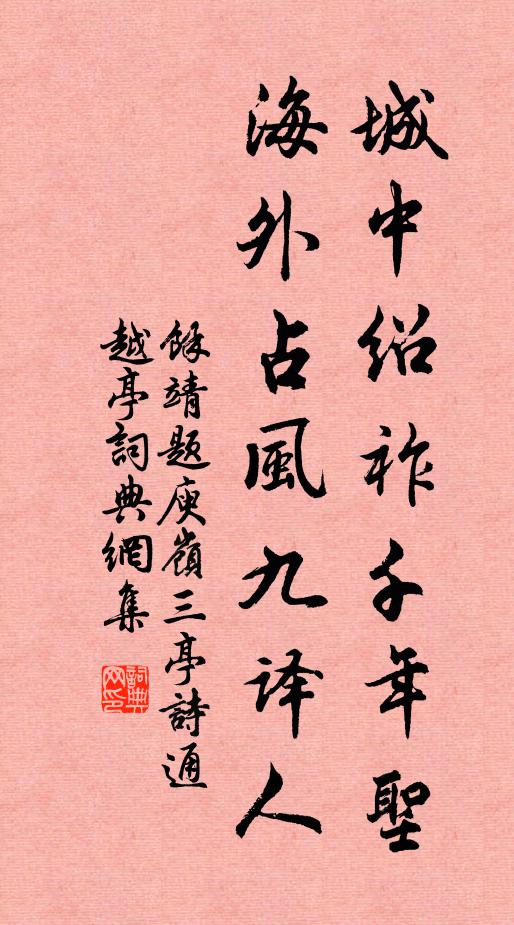 城中绍祚千年聖
海外占風九译人
餘靖题庾嶺三亭詩通
越亭詞典網集
詞典
网印